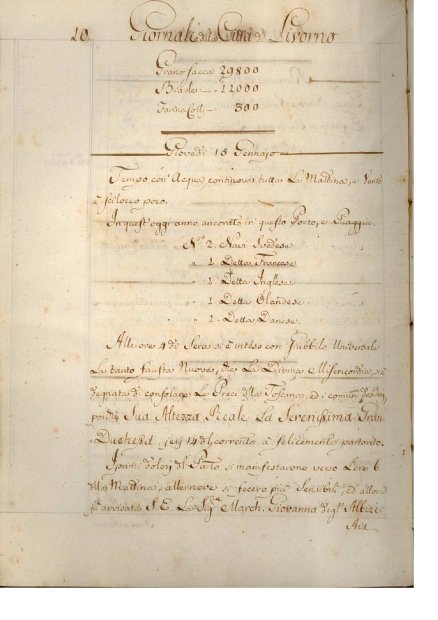 10 Giornali della Città di Livorno
Grano sacca 29800
Biade — 12000
Farina Colli — 300
Giovedì 15 Gennajo
Tempo con Acqua continova tutta La Mattina, e Vento
a scilocco poco.
In quest'oggi anno ancorato in questo Porto, e Piaggia
N.º 2. Navi Svedese
" 1. Detta Francese
" 1. Detta Inglese
" 1. Detta Olandese
" 1. Detta Danese
Alle ore 4 di Sera si è inteso con Jubbilo Universale
La tanto fausta Nuova, che La Divina Misericordia si è
degnata di consolare Le Preci della Toscana, ed i comuni
Sua Altezza Reale La Serenissima Gran
Duchessa jeri 14 del corrente à felicemente partorito.
I primi dolori del Parto si manifestarono verso L'ore 6
della Mattina, alle nove si fecero più Sensibili, ed allora
fù avvisata S. E. La Sig.ª March. Giovanna degl' Albizi
Aia